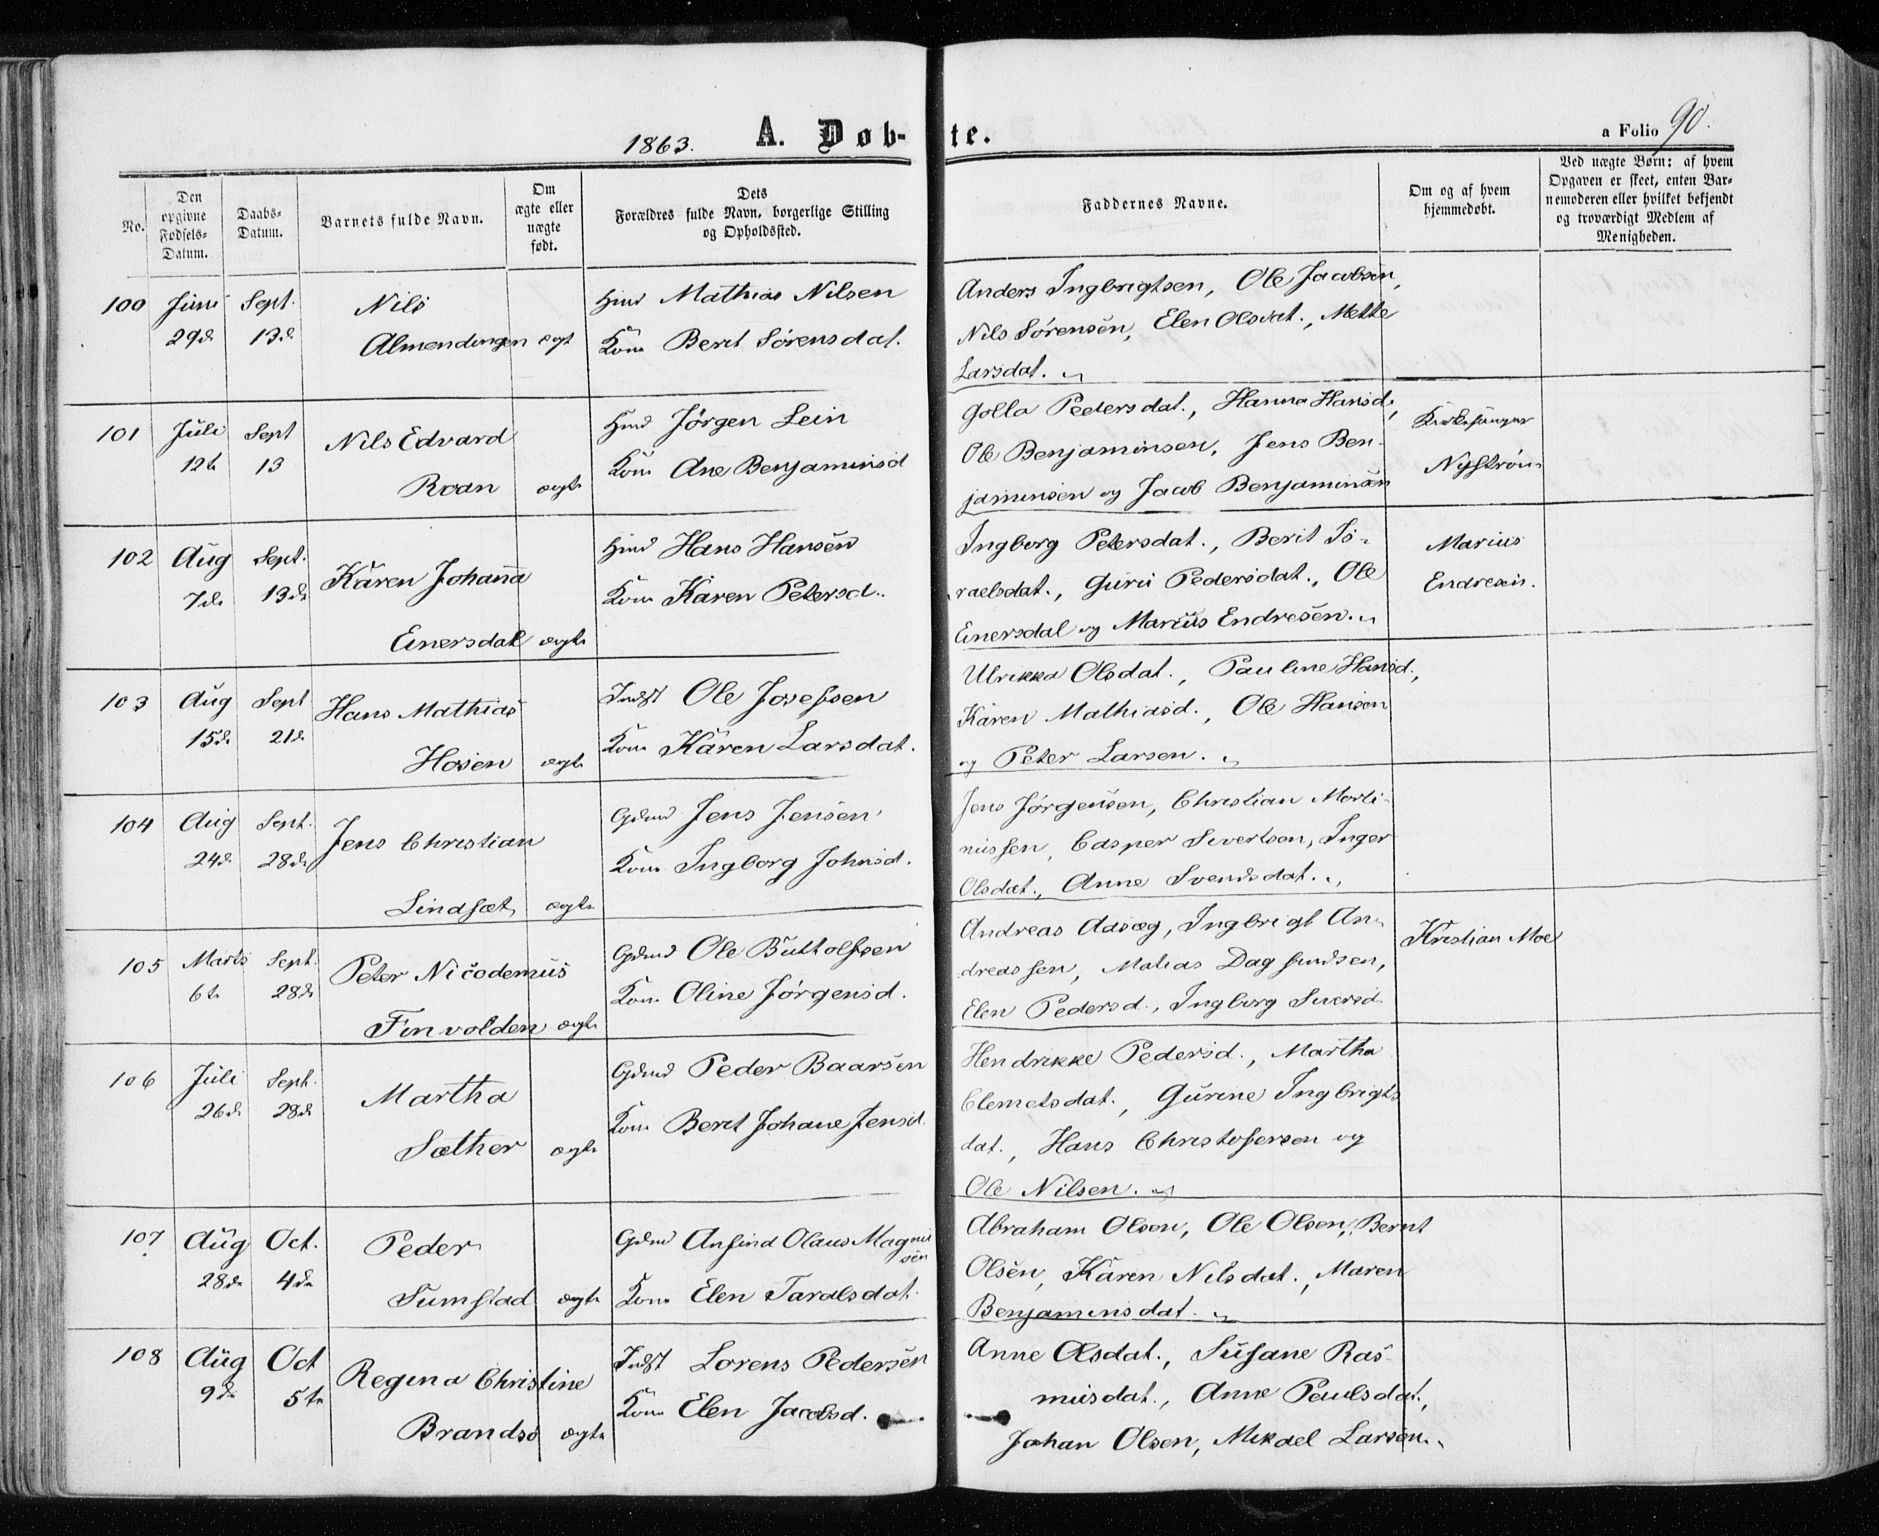 1863.
A. Døb-te.
a Folio 90.
No.
Den opgivne Fødsels-Datum.
Daabs-Datum.
Barnets fulde Navn.
Om ægte eller uægte født.
Dets Forældres fulde Navn, borgerlige Stilling og Opholdssted.
Faddernes Navne.
Om og af hvem hjemmedøbt.
Ved uægte Børn: af hvem Opgaven er skeet, enten Barnemoderen eller hvilket bekjendt og troværdigt Medlem af Menigheden.
100 Juni 29de Sept. 13de Nils Almendingen ægt
Hmd Mathias Nilsen
Kone Berit Sørensdat.
Anders Ingbrigtsen, Ole Jacobsen,
Nils Sørensen, Elen Olsdat., Mette
Larsdat.
101 Juli 12te Sept 13 Nils Edvard Roan ægte
Hmd Jørgen Lein
Kone Ane Benjaminsd
Golla Pedersdat., Hanna Hansd.,
Ole Benjaminsen, Jens Ben-
jaminsen og Jacob Benjaminsen
Kirkesanger
Nystrøm
102 Aug 7de Sept. 13de Karen Johanna Einersdal ægte
Hmd Hans Hansen
Kone Karen Petersd.
Ingborg Petersdat., Berit Is-
raelsdat., Guru Pedersdat., Ole
Einersdal og Marius Endresen.
Marius
Endresen.
103 Aug 15de Sept 21de Hans Mathias Hosen ægte
Indst Ole Josefsen
Kone Karen Larsdat.
Ulrikka Olsdat., Pauline Hansd.,
Karen Mathiasd., Ole Hansen
og Peter Larsen.
104 Aug 24de Sept. 28de Jens Christian Lindsæt ægte
Gdmd Jens Jensen
Kone Ingborg Johnsd.
Jens Jørgensen, Christian Marti-
niussen, Casper Sivertsen, Inger
Olsdat., Anne Svendsdat.
105 Marts 6te Sept. 28de Peter Nicodemus Finvolden ægte
Gdmd Ole Buttolfsen
Kone Oline Jørgensd.
Andreas Aasæg, Ingbrigt An-
dreassen, Matias Dagfindsen,
Elen Pedersd., Ingborg Siversd.
Kristian Moe
106 Juli 26de Sept. 28de Martha Sæther ægte
Gdmd Peder Baarsen
Kone Berit Johane Jensd.
Hendrikke Pedersd., Martha
Clemetsdat., Gurine Ingbrigts
dat., Hans Christofersen og
Ole Nilsen.
107 Aug 28de Oct. 4de Peder Sumstad ægte
Gdmd Anfind Olaus Magnu
sen
Kone Elen Taralsdat.
Abraham Olsen, Ole Olsen, Bernt
Olsen, Karen Nilsdat., Maren
Benjaminsdat.
108 Aug 9de Oct 5te Regina Christine Brandsø ægte
Indst Lorens Pedersen
Kone Elen Jacobsd.
Anne Olsdat., Susane Ras-
musdat., Anne Paulsdat.,
Johan Olsen, Mikael Larsen.